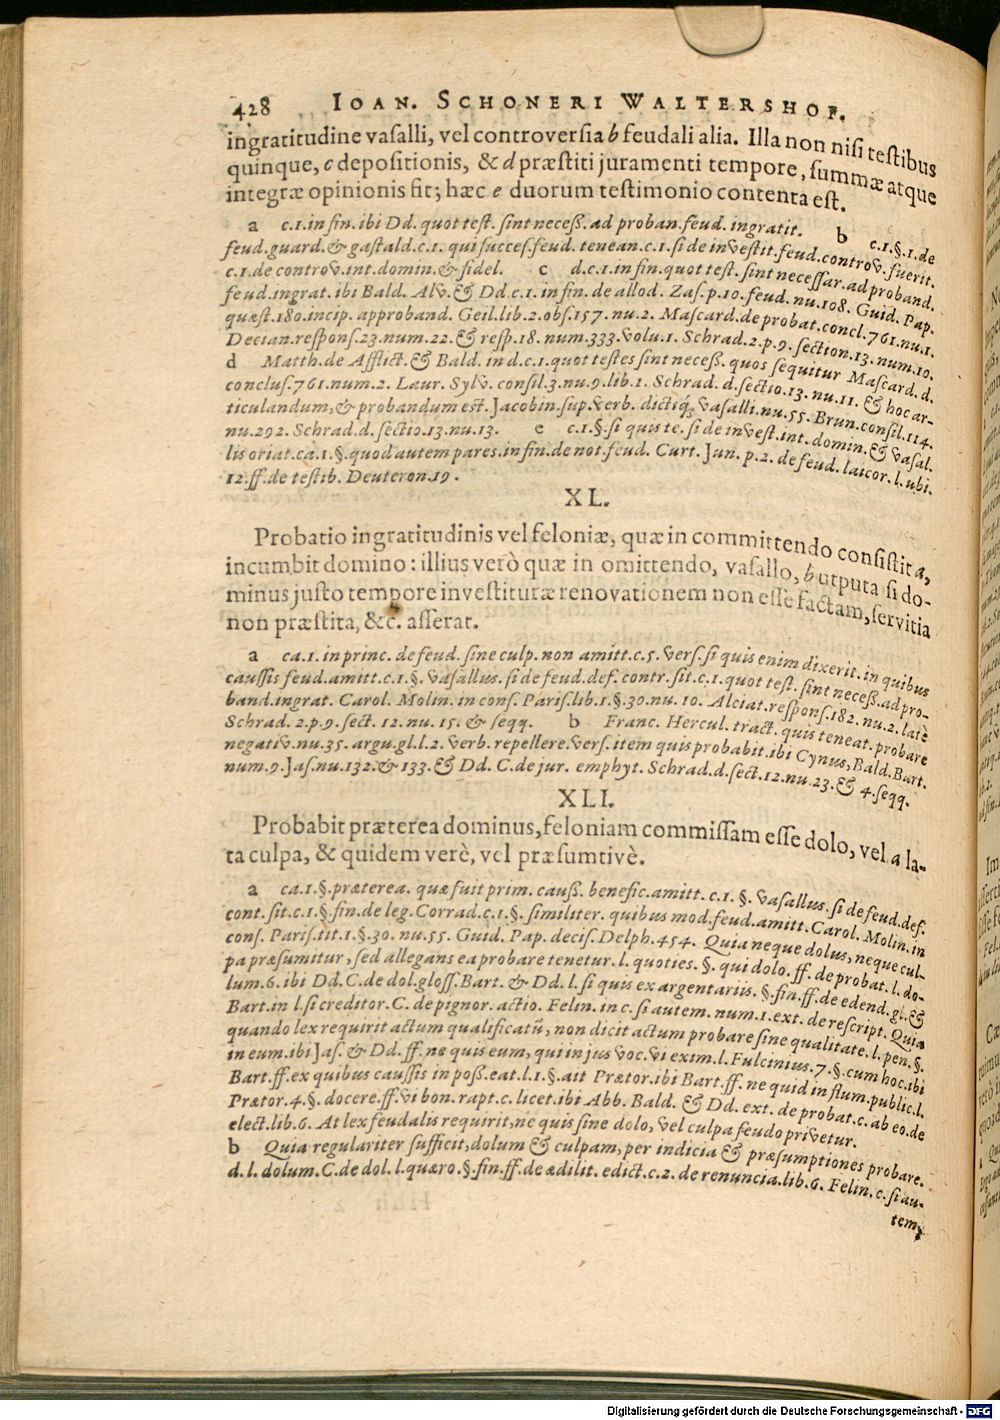 428 IOAN. SCHONERI WALTERSHOF.
ingratitudine vaſalli, vel controverſia b feudali alia. Illa non niſi teſtibus
quinque, c depoſitionis, & d præſtiti juramenti tempore, ſummæ atque
integræ opinionis fit; hæc e duorum teſtimonio contenta eſt.
a c.1. in fin. ibi Dd. quot teſt. ſint neceß. ad proban. feud. ingratit. b c.1.§.1. de
feud. guard. & gaſtald. c.1. qui ſucceſ. feud. tenean. c.1. ſi de inveſtit. feud. controv. fuerit.
c.1. de controv. int. domin. & fidel. c d.c.1. in fin. quot teſt. ſint neceſſar. ad proband.
feud. ingrat. ibi Bald. Alv. & Dd. c.1. in fin. de allod. Zaſ. p.10. feud. nu.108. Guid. Pap.
quæſt.180. incip. approband. Geil. lib.2. obſ.157. nu.2. Maſcard. de probat. concl.761. nu.1.
Decian. reſponſ.23. num.22. & reſp.18. num.333. volu.1. Schrad.2. p.9. ſection.13. num.10.
d Matth. de Afflict. & Bald. in d.c.1. quot teſtes ſint neceß. quos ſequitur Maſcard. d.
concluſ.761. num.2. Laur. Sylv. conſil.3. nu.9. lib.1. Schrad. d. ſectio.13. nu.11. & hoc ar-
ticulandum, & probandum eſt. Jacobin. ſup. verb. dictiq́; vaſalli. nu.55. Brun. conſil.114.
nu.292. Schrad. d. ſectio.13. nu.13. e c.1.§. ſi quis te. ſi de inveſt. int. domin. & vaſal.
lis oriat. ca.1.§. quod autem pares. in fin. de not. feud. Curt. Jun. p.2. de feud. laicor. l. ubi.
12. ff. de teſtib. Deuteron.19.
XL.
Probatio ingratitudinis vel feloniæ, quæ in committendo conſiſtit a,
incumbit domino: illius verò quæ in omittendo, vaſallo, b utputa ſi do-
minus juſto tempore inveſtituræ renovationem non eſſe factam, ſervitia
non præſtita, &c. aſſerat.
a ca.1. in princ. de feud. ſine culp. non amitt. c.5. verſ. ſi quis enim dixerit. in quibus
cauſſis feud. amitt. c.1.§. vaſallus. ſi de feud. def. contr. ſit. c.1. quot teſt. ſint neceß. ad pro-
band. ingrat. Carol. Molin. in conſ. Pariſ. lib.1.§.30. nu.10. Alciat. reſponſ.182. nu.2. latè
Schrad. 2. p.9. ſect. 12. nu. 15. & ſeqq. b Franc. Hercul. tract. quis teneat. probare
negativ. nu.35. argu. gl. l.2. verb. repellere. verſ. item quis probabit. ibi Cynus, Bald. Bart.
num.9. Jaſ. nu.132. & 133. & Dd. C. de jur. emphyt. Schrad. d. ſect.12. nu.23. & 4. ſeqq.
XLI.
Probabit præterea dominus, feloniam commiſſam eſſe dolo, vel a la-
ta culpa, & quidem verè, vel præſumtivè.
a ca.1.§. præterea. quæ fuit prim. cauß. benefic. amitt. c.1. §. vaſallus. ſi de feud. def.
cont. ſit. c.1.§. fin. de leg. Corrad. c.1.§. ſimiliter. quibus mod. feud. amitt. Carol. Molin. in
conſ. Pariſ. tit.1.§.30. nu.55. Guid. Pap. deciſ. Delph.454. Quia neque dolus, neque cul-
pa præſumitur, ſed allegans ea probare tenetur. l. quoties. §. qui dolo. ff. de probat. l. do-
lum.6. ibi Dd. C. de dol. gloſſ. Bart. & Dd. l. ſi quis ex argentariis. §. fin. ff. de edend. gl. &
Bart. in l. ſi creditor. C. de pignor. actio. Felin. in c. ſi autem. num.1. ext. de reſcript. Quia
quando lex requirit actum qualificatũ, non dicit actum probare ſine qualitate. l. pen. §.
in eum. ibi Jaſ. & Dd. ff. ne quis eum, qui in jus voc. vi exim. l. Fulcinius.7.§. cum hoc. ibi
Bart. ff. ex quibus cauſſis in poß. eat. l.1.§. ait Prætor. ibi Bart. ff. ne quid in flum. public. l.
Prætor.4.§. docere. ff. vi bon. rapt. c. licet. ibi Abb. Bald. & Dd. ext. de probat. c. ab eo. de
elect. lib.6. At lex feudalis requirit, ne quis ſine dolo, vel culpa feudo privetur.
b Quia regulariter ſufficit, dolum & culpam, per indicia & præſumptiones probare.
d. l. dolum. C. de dol. l. quæro. §. fin. ff. de ædilit. edict. c.2. de renuncia. lib.6. Felin. c. ſi au-
tem,
Digitalisierung gefördert durch die Deutsche Forschungsgemeinschaft - DFG